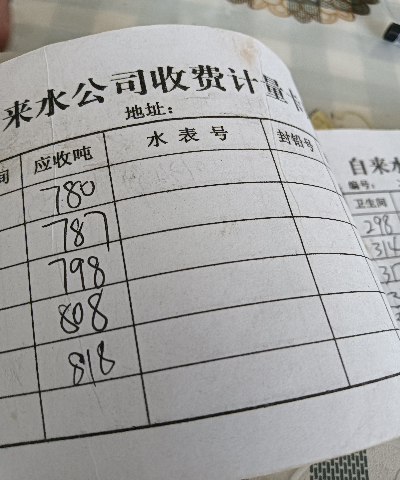 来水公司收费计量卡
地址:
间 应收吨 水表号 封铅号
780
787
798
808
818
自来水
编号:
卫生间
298
314